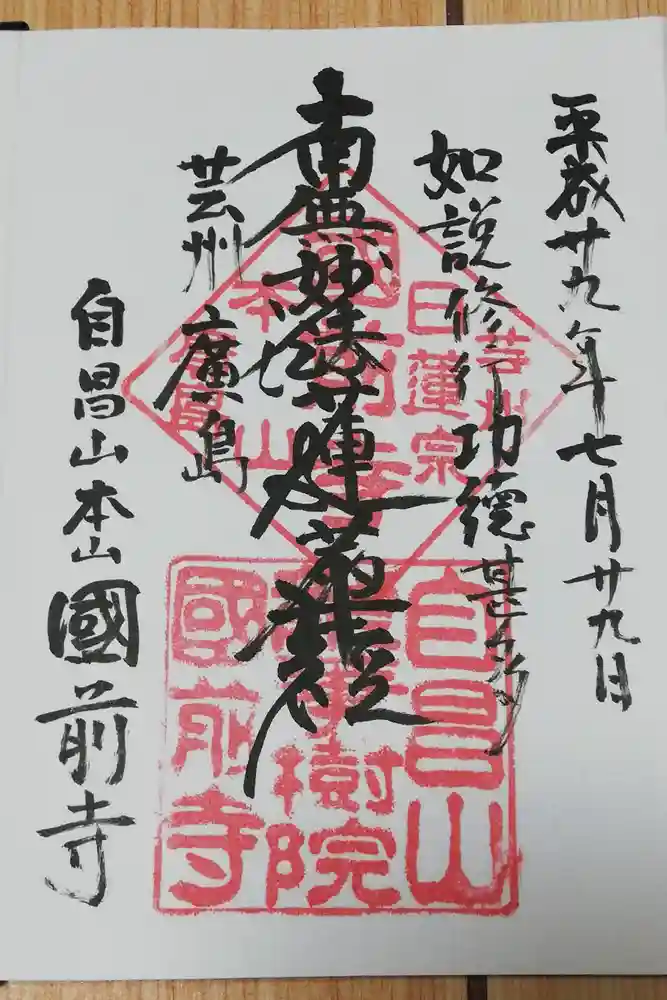 平成廿九年七月廿九日
如説修行功徳甚多
南無妙法蓮華經
芸州 廣島
自昌山本山 國前寺
芸州
日蓮宗
國前寺
本山
自昌山
樹院
國前寺